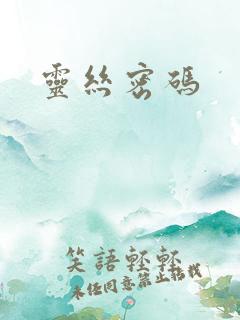 靈絲密碼
笑語輕輕
未經同意禁止轉載